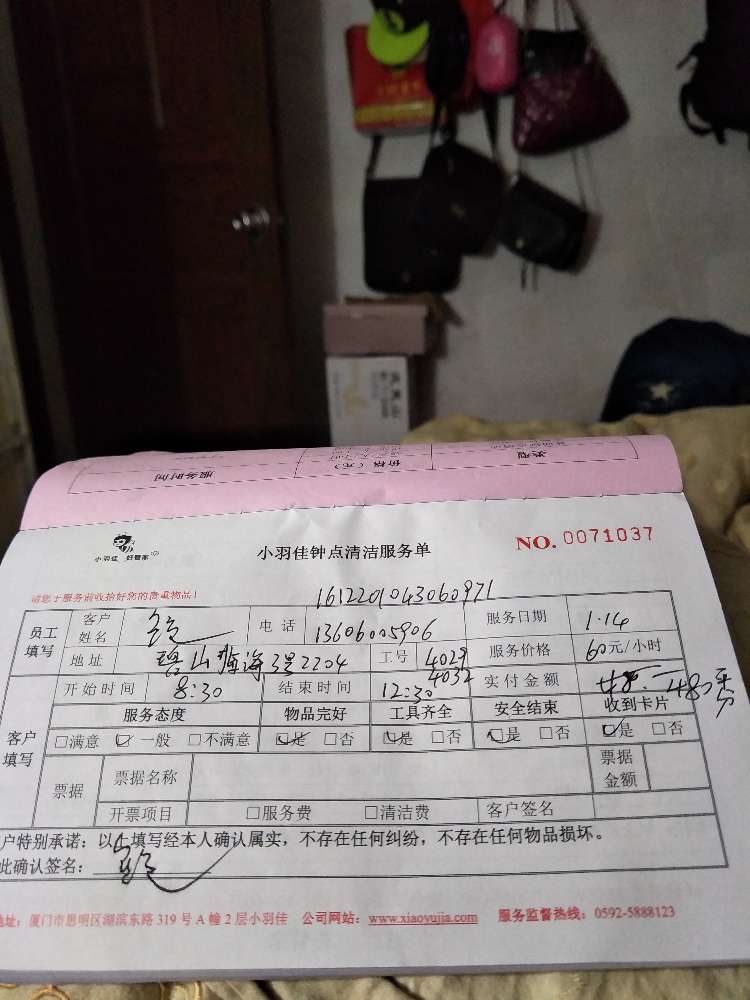 服务时间 价格（元） 类型
小羽佳 好管家
小羽佳钟点清洁服务单
NO. 0071037
请您于服务前收拾好您的贵重物品！
1612201043060971
员工填写 客户姓名 电话 13606005906 服务日期 1·14
地址 碧山临海3号2204 工号 4029 4032 服务价格 60元/小时
客户填写 开始时间 8:30 结束时间 12:30 实付金额 480
服务态度 物品完好 工具齐全 安全结束 收到卡片
□满意 ☑一般 □不满意 ☑是 □否 ☑是 □否 ☑是 □否 ☑是 □否
票据 票据名称 票据金额
开票项目 □服务费 □清洁费 客户签名
户特别承诺：以上填写经本人确认属实，不存在任何纠纷，不存在任何物品损坏。
此确认签名：
地址：厦门市思明区湖滨东路 319 号 A 幢 2 层小羽佳 公司网站：www.xiaoyujia.com 服务监督热线：0592-5888123